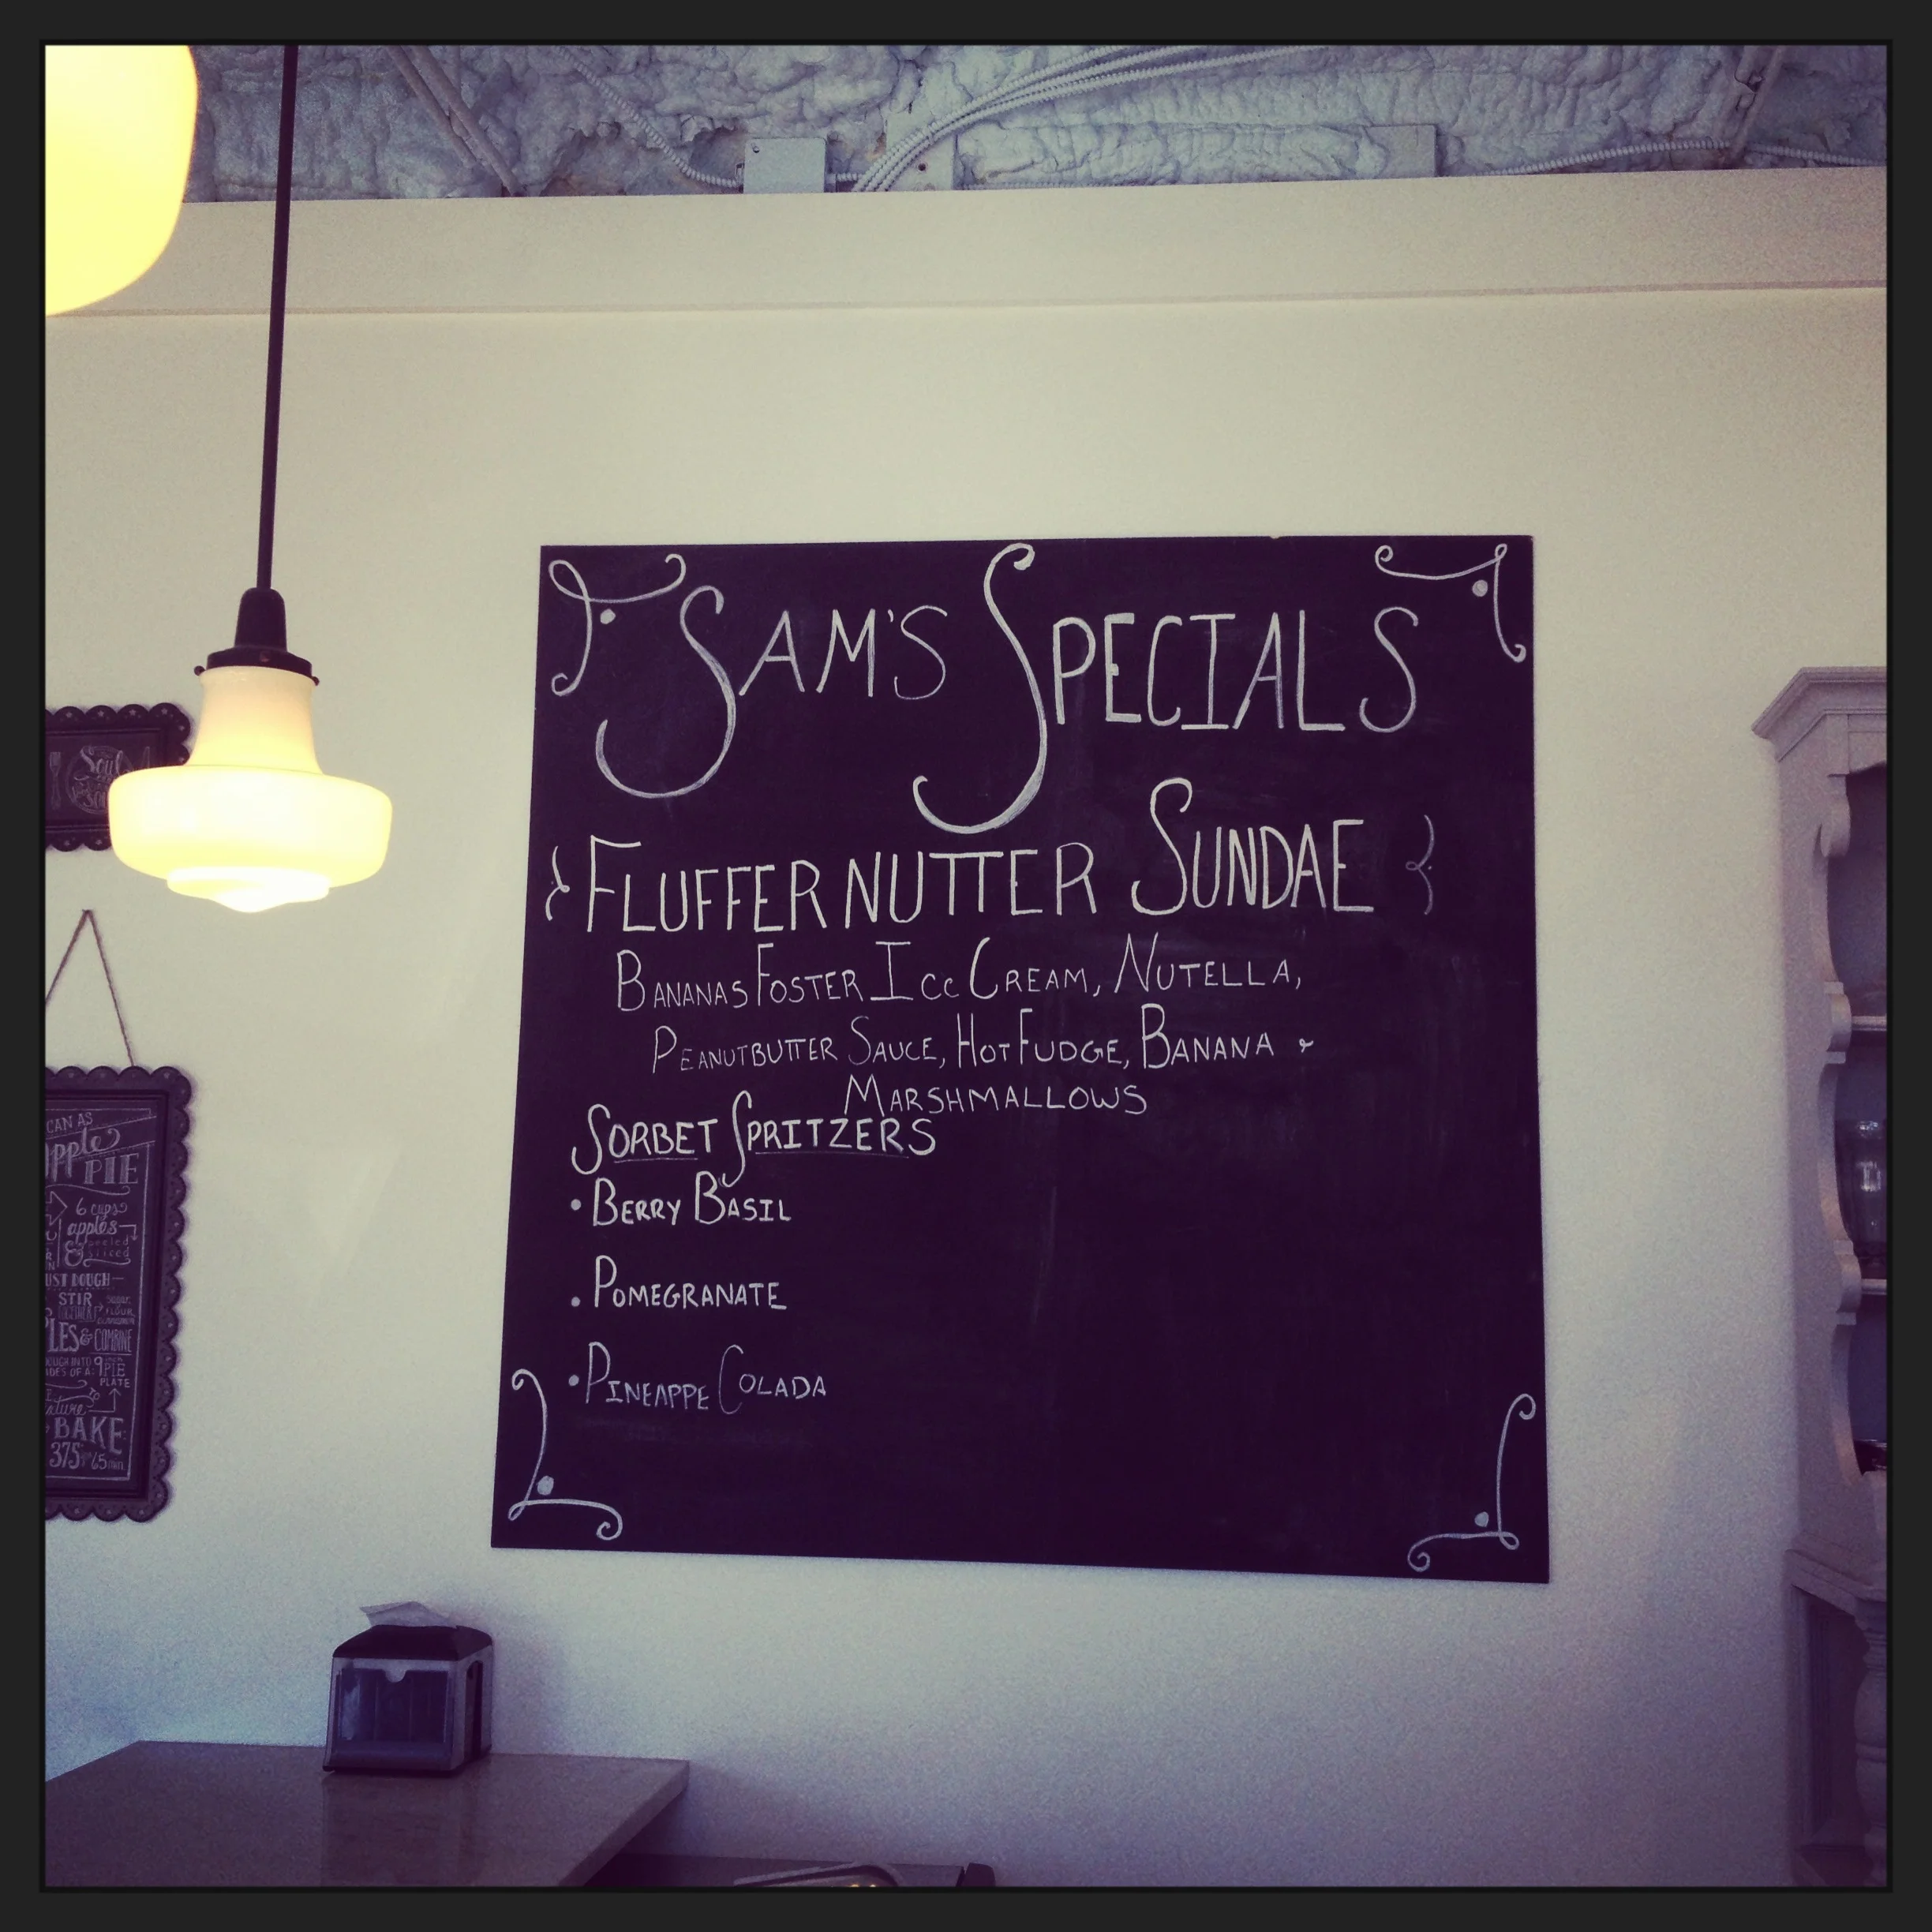 SAM'S SPECIALS
FLUFFERNUTTER SUNDAE
BANANAS FOSTER ICE CREAM, NUTELLA,
PEANUTBUTTER SAUCE, HOT FUDGE, BANANA &
MARSHMALLOWS
SORBET SPRITZERS
• BERRY BASIL
• POMEGRANATE
• PINEAPPE COLADA
Soul
CAN AS
apple
PIE
6 cups
apples
& peeled
sliced
UST DOUGH
STIR
sugar,
FLOUR
LES & COMBINE
OUGH INTO 9
PIE
DES OF A:
PLATE
BAKE
375° 65 min